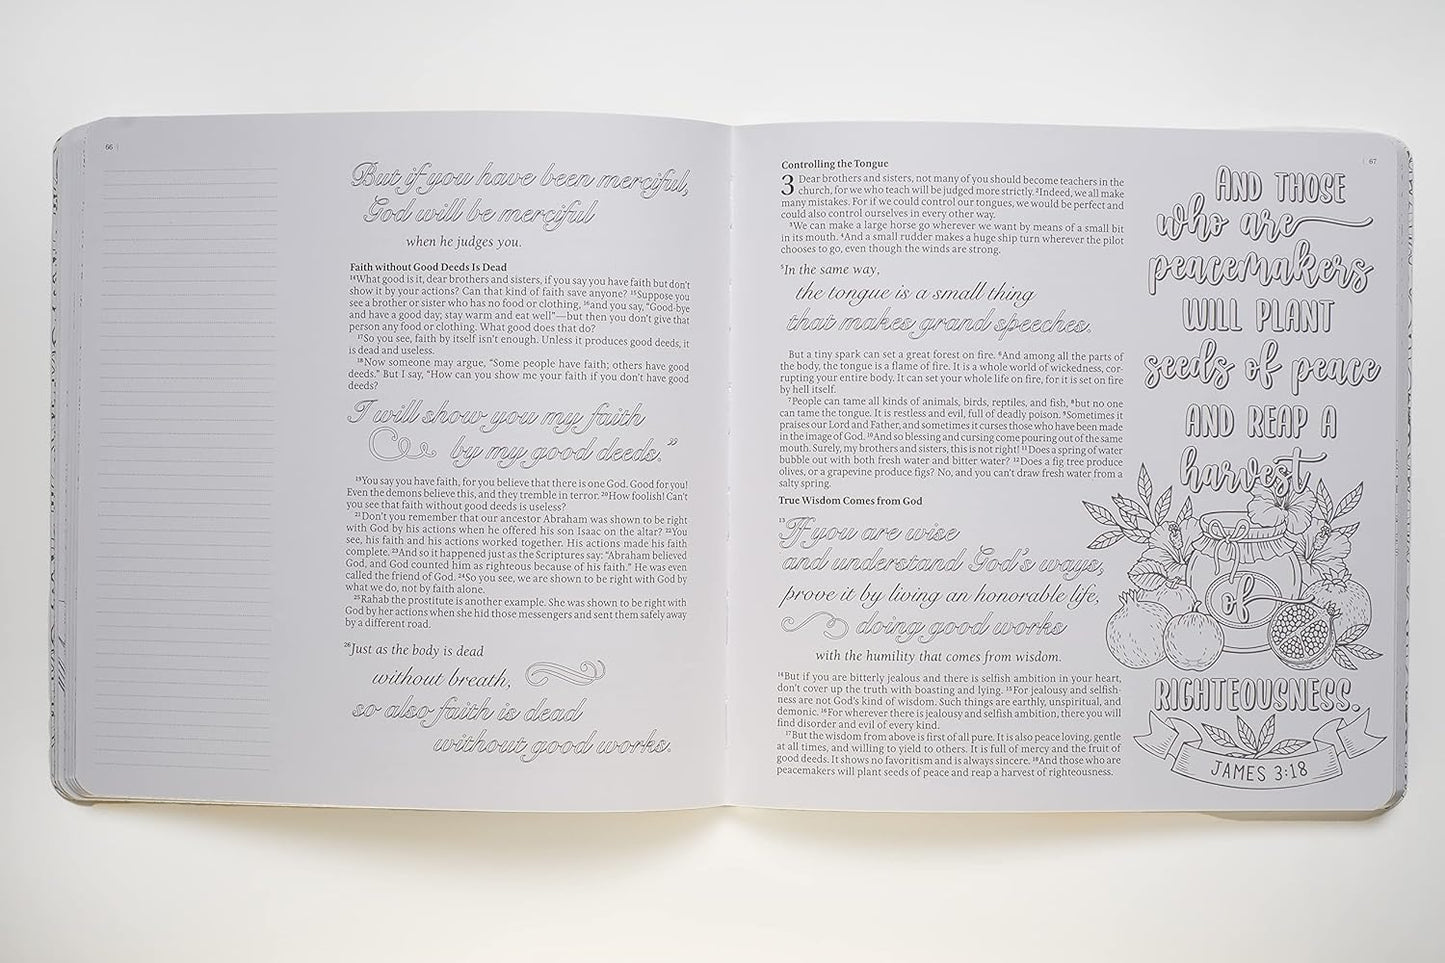 66
But if you have been merciful,
God will be merciful
when he judges you.
Faith without Good Deeds Is Dead
14What good is it, dear brothers and sisters, if you say you have faith but don't
show it by your actions? Can that kind of faith save anyone? 15Suppose you
see a brother or sister who has no food or clothing, 16and you say, “Good-bye
and have a good day; stay warm and eat well”—but then you don't give that
person any food or clothing. What good does that do?
17So you see, faith by itself isn't enough. Unless it produces good deeds, it
is dead and useless.
18Now someone may argue, “Some people have faith; others have good
deeds.” But I say, “How can you show me your faith if you don't have good
deeds?
I will show you my faith
by my good deeds.”
19You say you have faith, for you believe that there is one God. Good for you!
Even the demons believe this, and they tremble in terror. 20How foolish! Can't
you see that faith without good deeds is useless?
21Don't you remember that our ancestor Abraham was shown to be right
with God by his actions when he offered his son Isaac on the altar? 22You
see, his faith and his actions worked together. His actions made his faith
complete. 23And so it happened just as the Scriptures say: “Abraham believed
God, and God counted him as righteous because of his faith.” He was even
called the friend of God. 24So you see, we are shown to be right with God by
what we do, not by faith alone.
25Rahab the prostitute is another example. She was shown to be right with
God by her actions when she hid those messengers and sent them safely away
by a different road.
26Just as the body is dead
without breath,
so also faith is dead
without good works.
Controlling the Tongue
3 Dear brothers and sisters, not many of you should become teachers in the
church, for we who teach will be judged more strictly. 2Indeed, we all make
many mistakes. For if we could control our tongues, we would be perfect and
could also control ourselves in every other way.
3We can make a large horse go wherever we want by means of a small bit
in its mouth. 4And a small rudder makes a huge ship turn wherever the pilot
chooses to go, even though the winds are strong.
5In the same way,
the tongue is a small thing
that makes grand speeches.
But a tiny spark can set a great forest on fire. 6And among all the parts of
the body, the tongue is a flame of fire. It is a whole world of wickedness, cor-
rupting your entire body. It can set your whole life on fire, for it is set on fire
by hell itself.
7People can tame all kinds of animals, birds, reptiles, and fish, 8but no one
can tame the tongue. It is restless and evil, full of deadly poison. 9Sometimes it
praises our Lord and Father, and sometimes it curses those who have been made
in the image of God. 10And so blessing and cursing come pouring out of the same
mouth. Surely, my brothers and sisters, this is not right! 11Does a spring of water
bubble out with both fresh water and bitter water? 12Does a fig tree produce
olives, or a grapevine produce figs? No, and you can't draw fresh water from a
salty spring.
True Wisdom Comes from God
13If you are wise
and understand God's ways,
prove it by living an honorable life,
doing good works
with the humility that comes from wisdom.
14But if you are bitterly jealous and there is selfish ambition in your heart,
don't cover up the truth with boasting and lying. 15For jealousy and selfish-
ness are not God's kind of wisdom. Such things are earthly, unspiritual, and
demonic. 16For wherever there is jealousy and selfish ambition, there you will
find disorder and evil of every kind.
17But the wisdom from above is first of all pure. It is also peace loving, gentle
at all times, and willing to yield to others. It is full of mercy and the fruit of
good deeds. It shows no favoritism and is always sincere. 18And those who are
peacemakers will plant seeds of peace and reap a harvest of righteousness.
67
AND THOSE
who are
peacemakers
WILL PLANT
seeds of peace
AND REAP A
harvest
of
RIGHTEOUSNESS.
JAMES 3:18